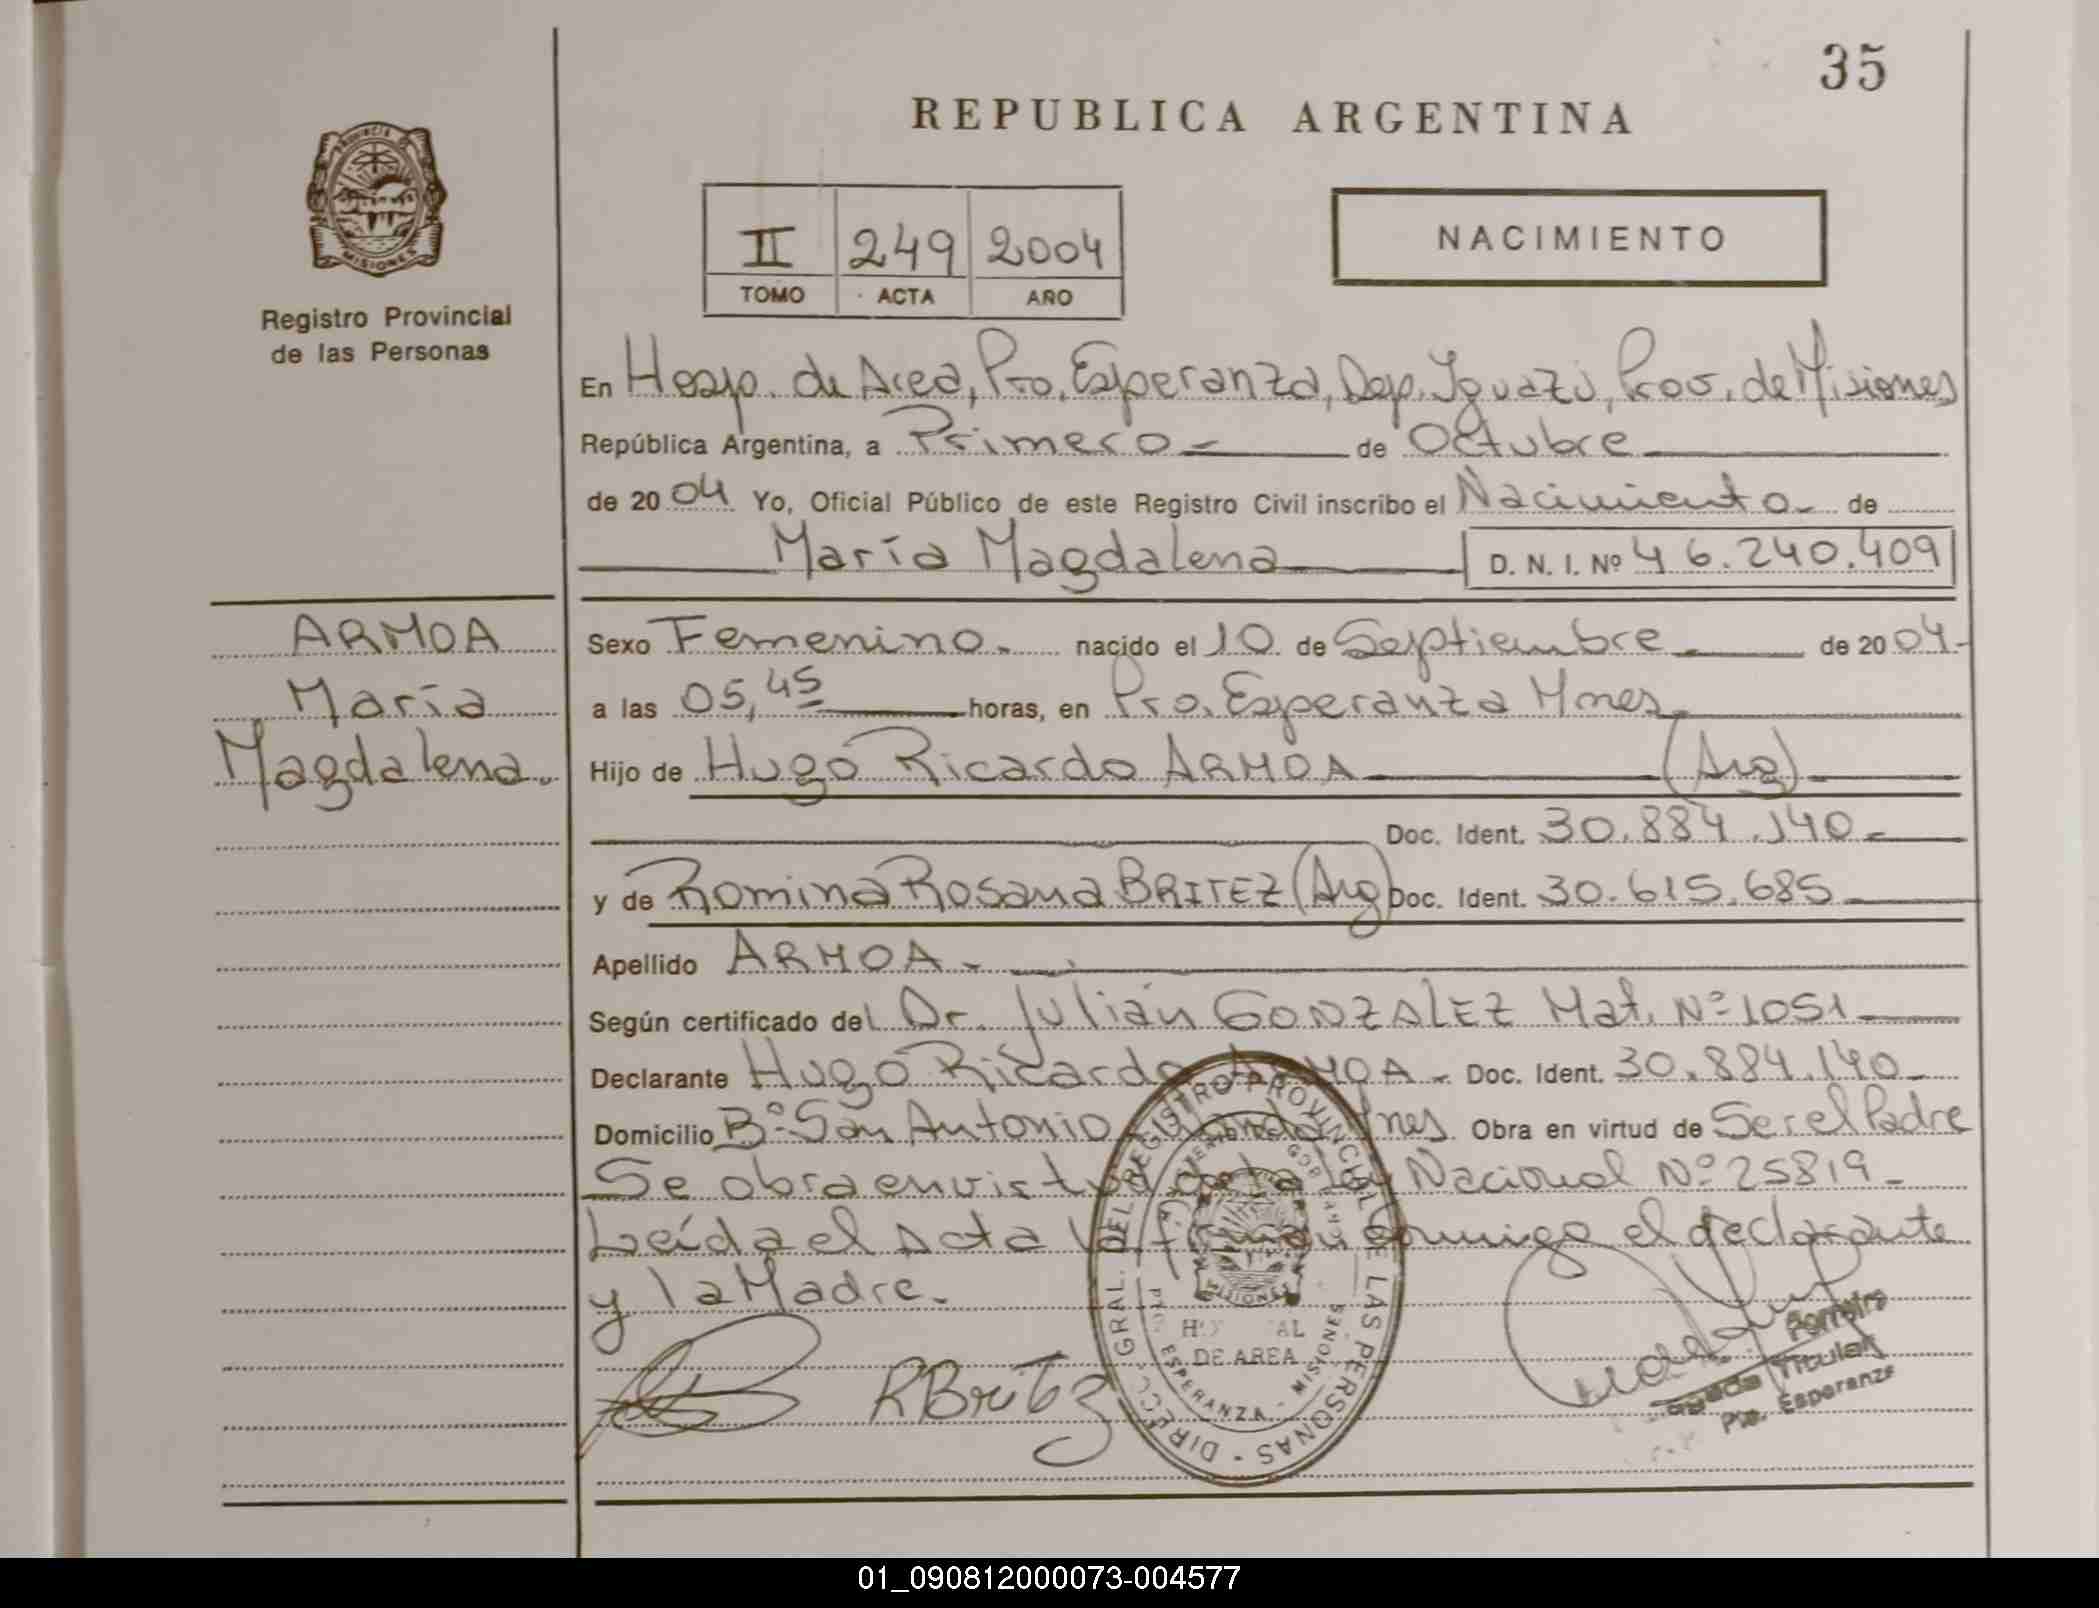 35
REPUBLICA ARGENTINA
PROVINCIA DE
MISIONES
Registro Provincial
de las Personas
II 249 2004
TOMO ACTA AÑO
NACIMIENTO
En Hosp. de Area, Pto. Esperanza, Dep. Iguazú, Prov. de Misiones
República Argentina, a Primero - de Octubre
de 2004 Yo, Oficial Público de este Registro Civil inscribo el Nacimiento - de
María Magdalena D. N. I. Nº 46.240.409
ARMOA
María
Magdalena.
Sexo Femenino. nacido el 10 de Septiembre - de 2004-
a las 05,45 horas, en Pto. Esperanza Mnes.
Hijo de Hugo Ricardo ARMOA (Arg)
Doc. Ident. 30.884.140-
y de Romina Rosana BRITEZ (Arg) Doc. Ident. 30.615.685
Apellido ARMOA -
Según certificado del Dr. Julián GONZALEZ Mat. Nº 1051
Declarante Hugo Ricardo ARMOA - Doc. Ident. 30.884.140-
Domicilio Bº San Antonio Mnes. Obra en virtud de Ser el Padre
Se obra en virtud de la Ley Nacional Nº 25819-
Leída el Acta la firman conmigo el declarante
y la Madre.
RBritez
DIRECC. GRAL. DEL REGISTRO PROVINCIAL DE LAS PERSONAS
MISIONES
DE AREA
ESPERANZA - MISIONES
Ferreira
Titular
Pto. Esperanza
01_090812000073-004577